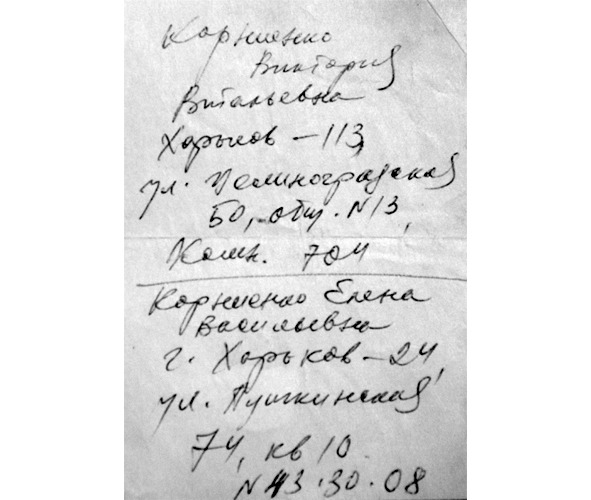 Корниенко
Виктория
Витальевна
Харьков – 113,
ул. Целиноградская
50, общ. N13,
Комн. 704
Корниенко Елена
Васильевна
г. Харьков – 24,
ул. Пушкинская
74, кв 10
N 43.30.08